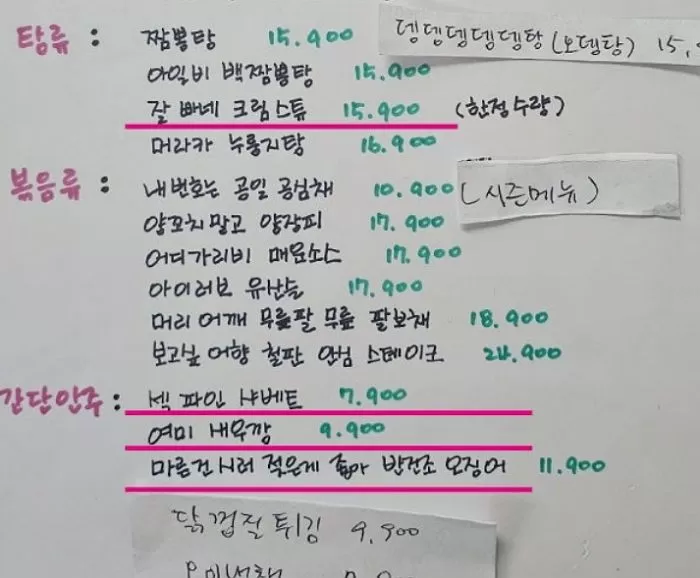 탕류 : 짬뽕탕 15.900
뎅뎅뎅뎅뎅탕(오뎅탕) 15,
아일비 백짬뽕탕 15.900
잘 빠네 크림스튜 15.900 (한정수량)
머라카 누룽지탕 16.900
볶음류 : 내번호는 공일 공심채 10.900 (시즌메뉴)
양꼬치말고 양장피 17.900
어디가리비 매운소스 17.900
아이러브 유산슬 17.900
머리 어깨 무릎팔 무릎 팔보채 18.900
보고싶 어향 철판 안심 스테이크 24.900
간단안주 : 섹 파인 샤베트 7.900
여미 새우깡 9.900
마른건 시러 젖은게 좋아 반건조 오징어 11.900
닭껍질튀김 9,900